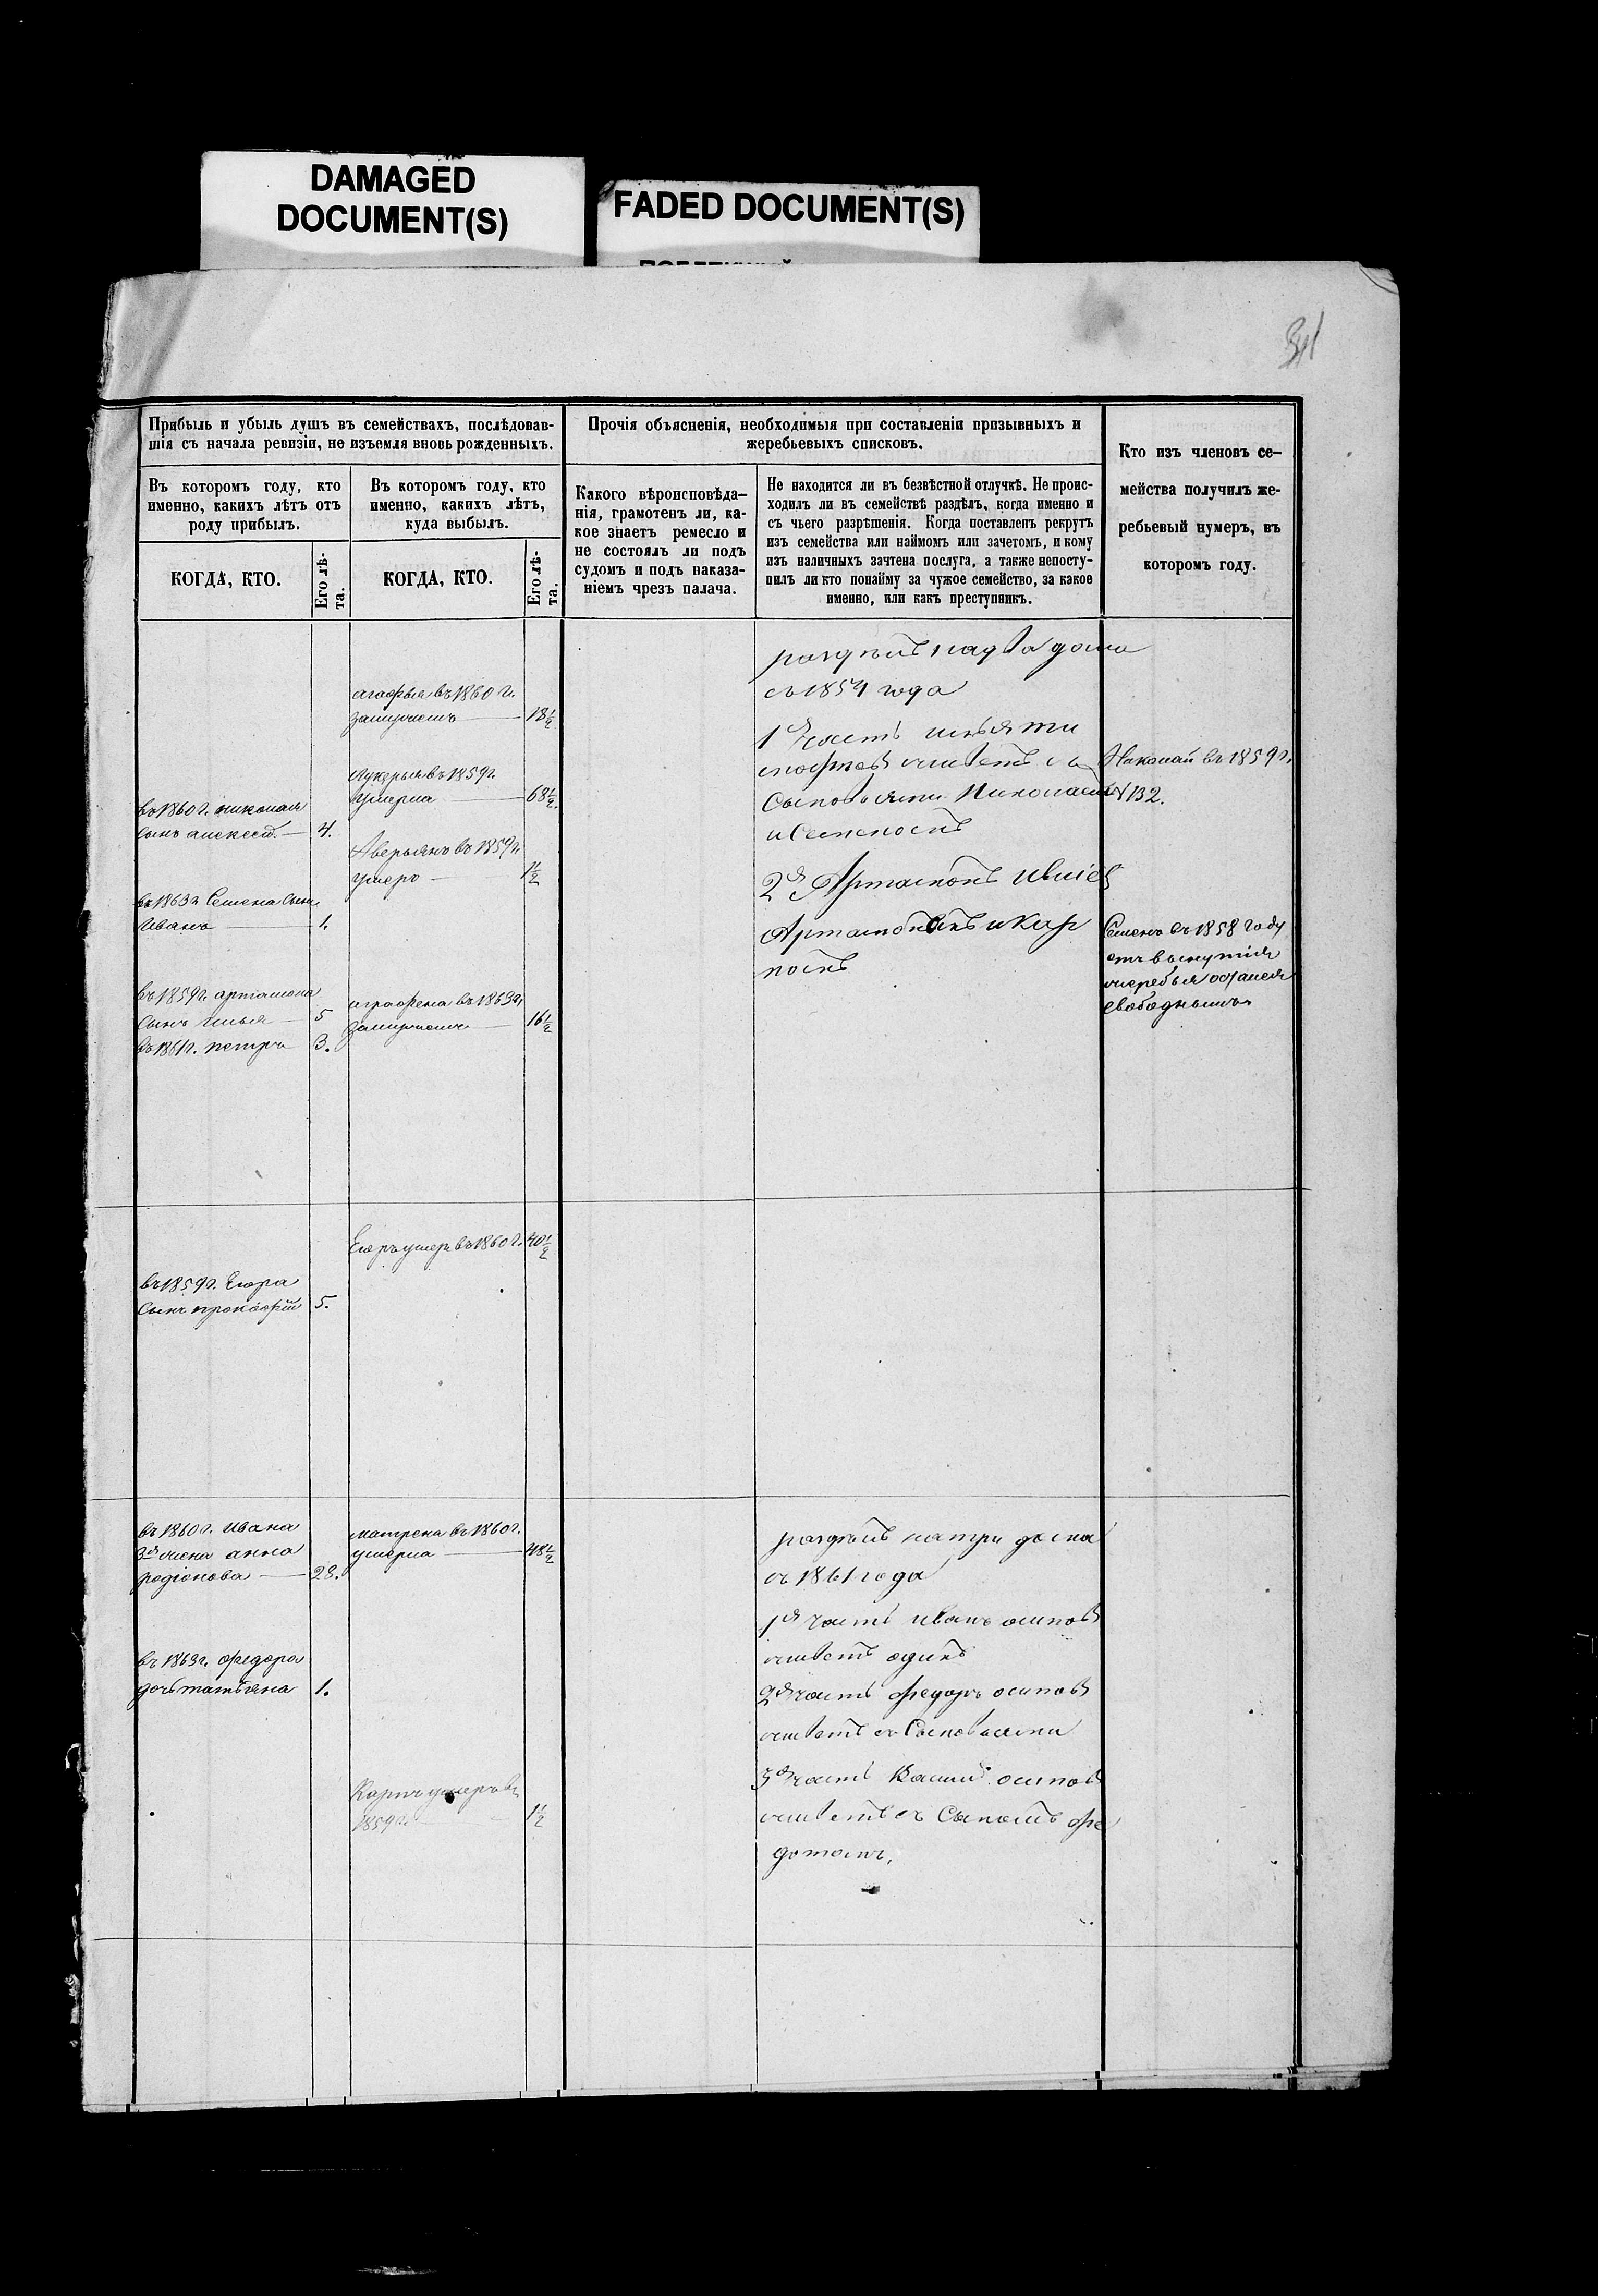 DAMAGED
DOCUMENT(S)
FADED DOCUMENT(S)
Прибыль и убыль душъ въ семействахъ, послѣдовав-
шія съ начала ревизіи, не изъемля вновь рожденныхъ.
Въ которомъ году, кто
именно, какихъ лѣтъ отъ
роду прибылъ.
КОГДА, КТО.
Его лѣ-
та.
Въ которомъ году, кто
именно, какихъ лѣтъ,
куда выбылъ.
КОГДА, КТО.
Его лѣ-
та.
Прочія объясненія, необходимыя при составленіи призывныхъ и
жеребьевыхъ списковъ.
Какого вѣроисповѣда-
нія, грамотенъ ли, ка-
кое знаетъ ремесло и
не состоялъ ли подъ
судомъ и подъ наказа-
ніемъ чрезъ палача.
Не находится ли въ безвѣстной отлучкѣ. Не проис-
ходилъ ли въ семействѣ раздѣлъ, когда именно и
съ чьего разрѣшенія. Когда поставленъ рекрутъ
изъ семейства или наймомъ или зачетомъ, и кому
изъ наличныхъ зачтена послуга, а также непосту-
пилъ ли кто понайму за чужое семейство, за какое
именно, или какъ преступникъ.
Кто изъ членовъ се-
мейства получилъ же-
ребьевый нумеръ, въ
которомъ году.
въ 1860 г. николая
сынъ алексей 4.
въ 1863 г. Семена сынъ
Иванъ 1.
въ 1859 г. артамона
сынъ илья 5
въ 1861 г. петръ 3.
агафья въ 1860 г.
замужемъ 18½
лукерья въ 1859 г.
умерла 68½
Аверьянъ въ 1859 г.
умеръ 1½
аграфена въ 1863 г.
замужемъ 16½
раздѣлъ на два дома
съ 1854 года
1я часть
живетъ съ
Сыновьями Николаемъ
и Семеномъ
2я Артамонъ
Артамоновъ и Кар
помъ
Николай въ 1859 г.
N 132.
Семенъ въ 1858 году
отъ вынутія
жеребья остался
свободнымъ
въ 1859 г. Егора
сынъ прокофій 5.
Егоръ умеръ въ 1860 г. 40½
въ 1860 г. Ивана
3я жена анна
родіонова 28.
въ 1863 г. федора
дочь татьяна 1.
матрена въ 1860 г.
умерла 48½
Карпъ умеръ въ
1859 г. 1½
раздѣлъ на три дома
съ 1861 года
1я часть иванъ осиповъ
живетъ одинъ
2я часть федоръ осиповъ
живетъ съ Сыновьями
3я часть осиповъ
живетъ съ Сыномъ фе
дотомъ.